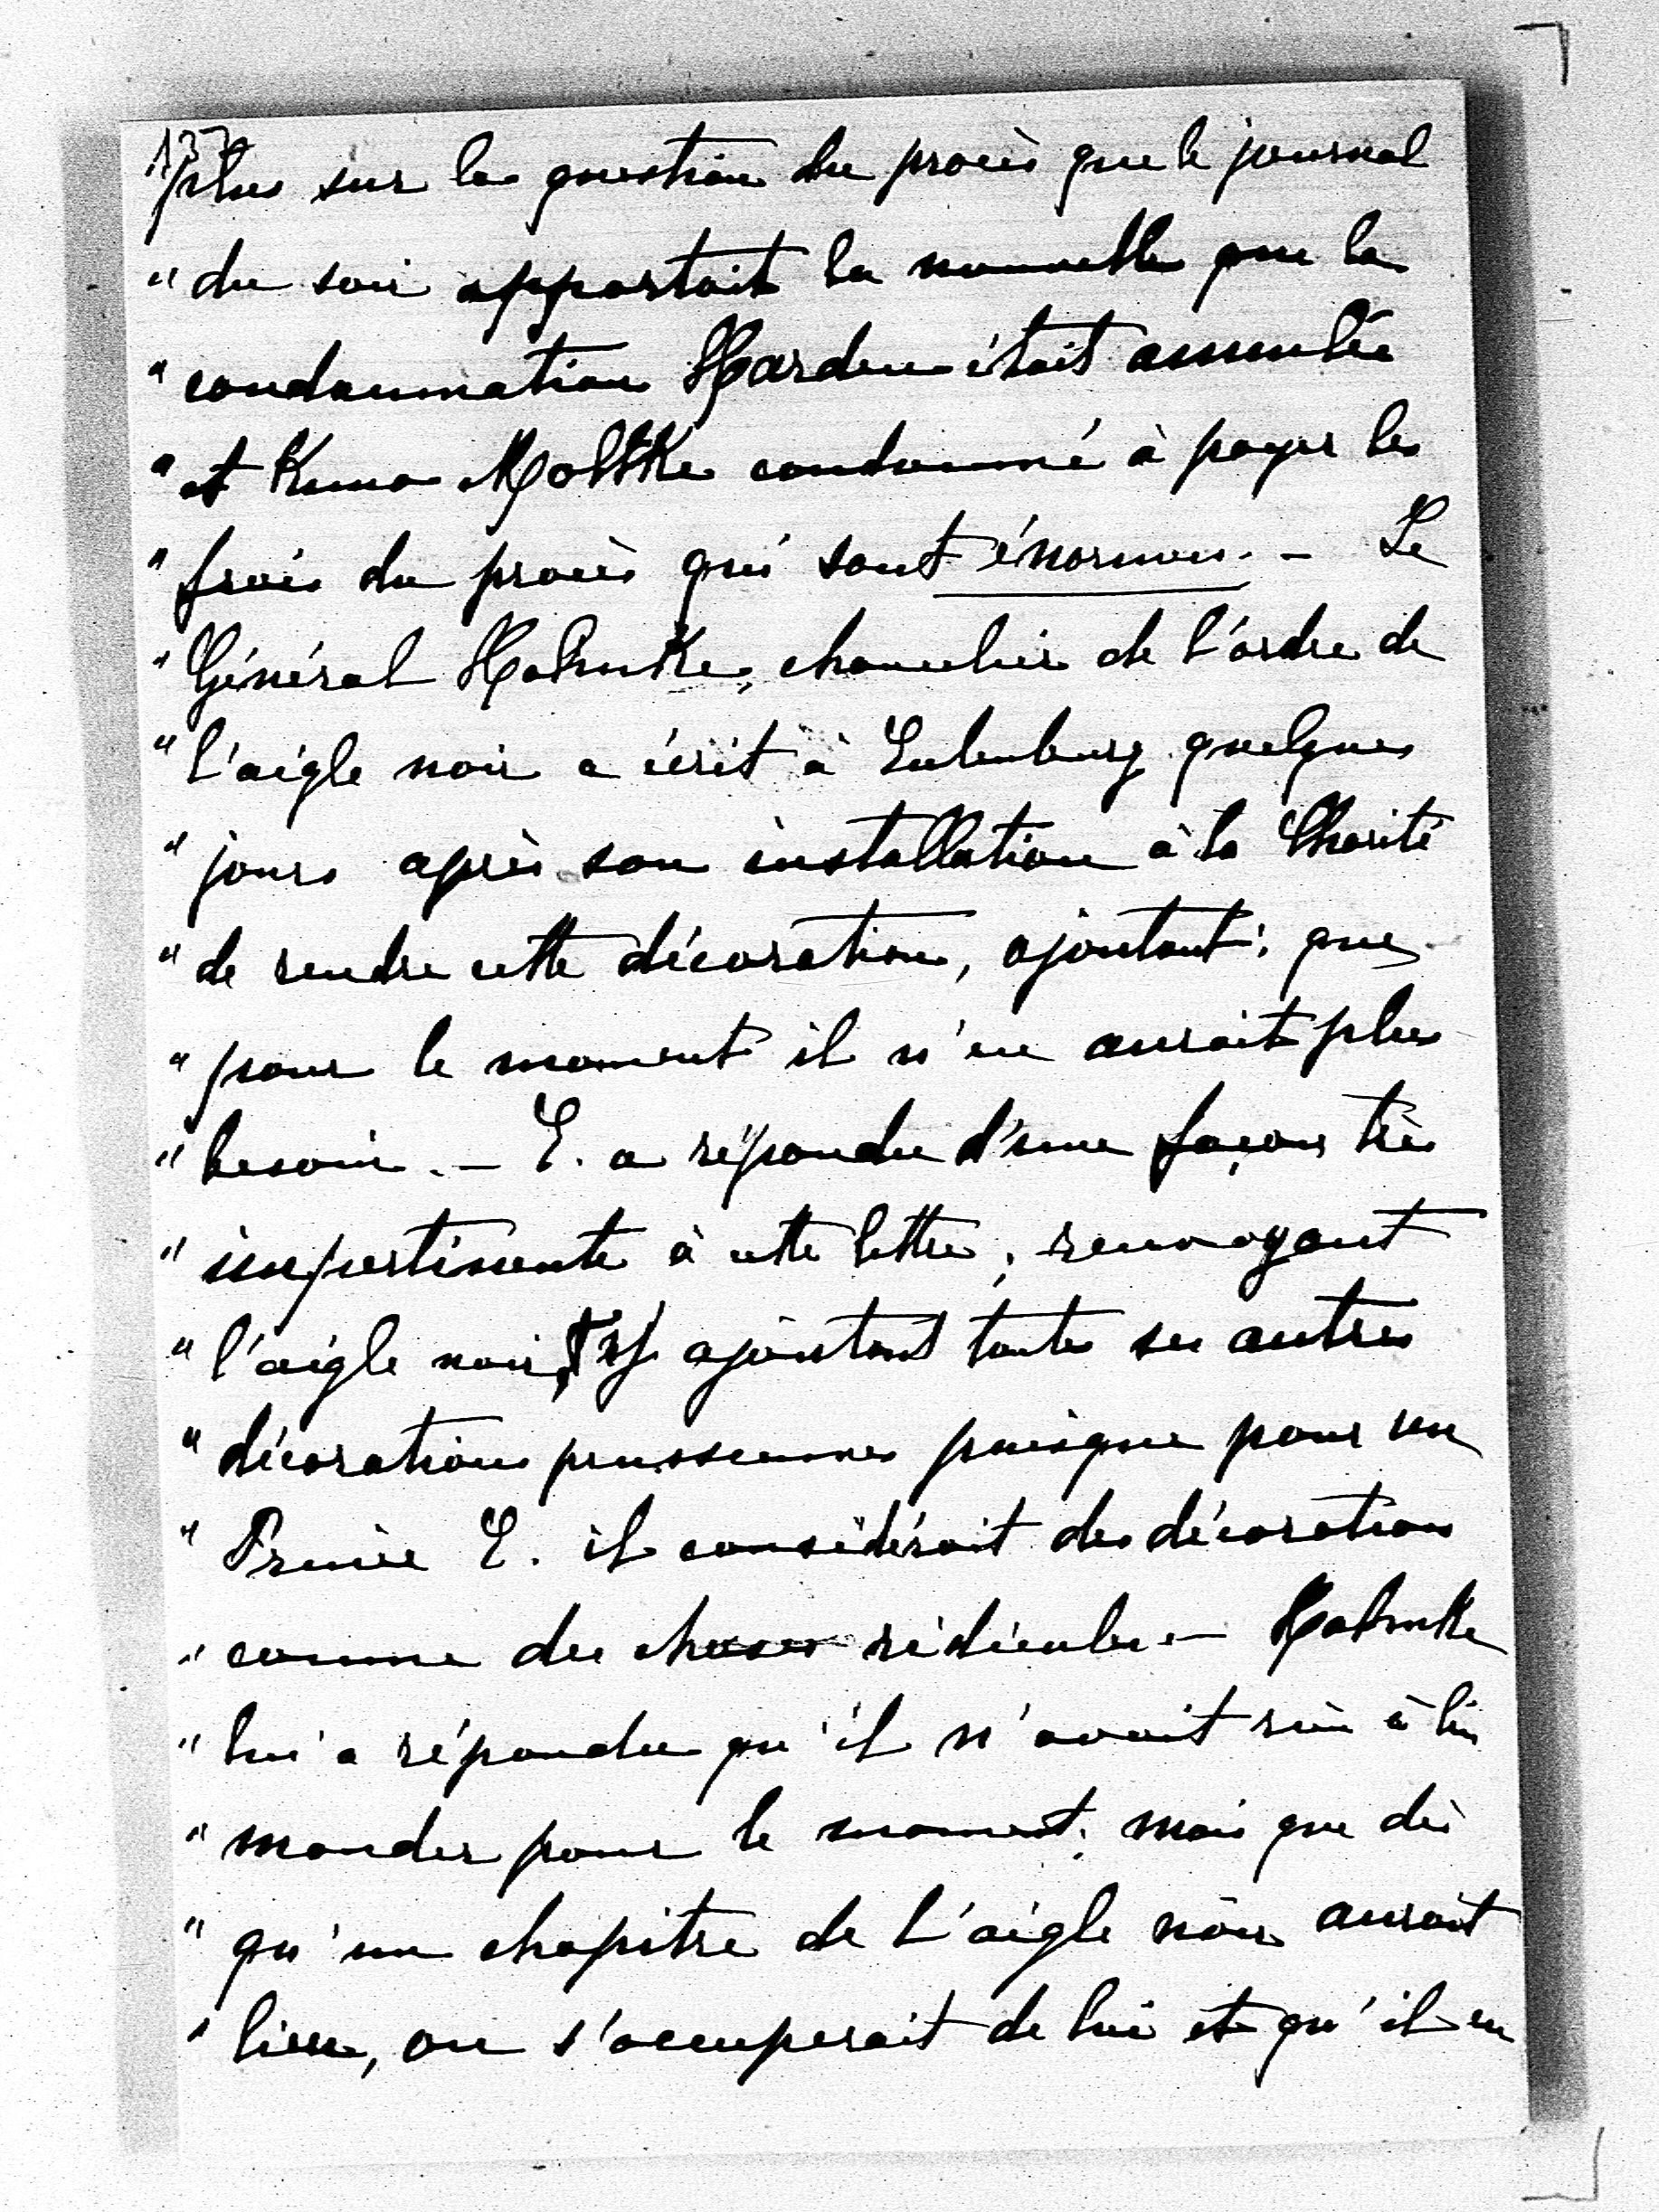 137
plus sur la question du procès que le journal
" du soir apportait la nouvelle que la
" condamnation Harden était annulée
" et Kuno Moltke condamné à payer les
" frais du procès qui sont énormes. – Le
" Général Hahnke, chancelier de l'ordre de
" l'aigle noir a écrit à Eulenburg quelques
" jours après son installation à la Charité
" de rendre cette décoration, ajoutant: que
" pour le moment il n'en aurait plus
" besoin. – E. a répondu d'une façon très
" impertinente à cette lettre, renvoyant
" l'aigle noir, et y ajoutant toutes ses autres
" décorations prussiennes puisque pour un
" Prince E. il considérait des décorations
" comme des choses ridicules – Hahnke
" lui a répondu qu'il n'avait rien à lui
" mander pour le moment, mais que dès
" qu'un chapitre de l'aigle noir aurait
" lieu, on s'occuperait de lui et qu'il en